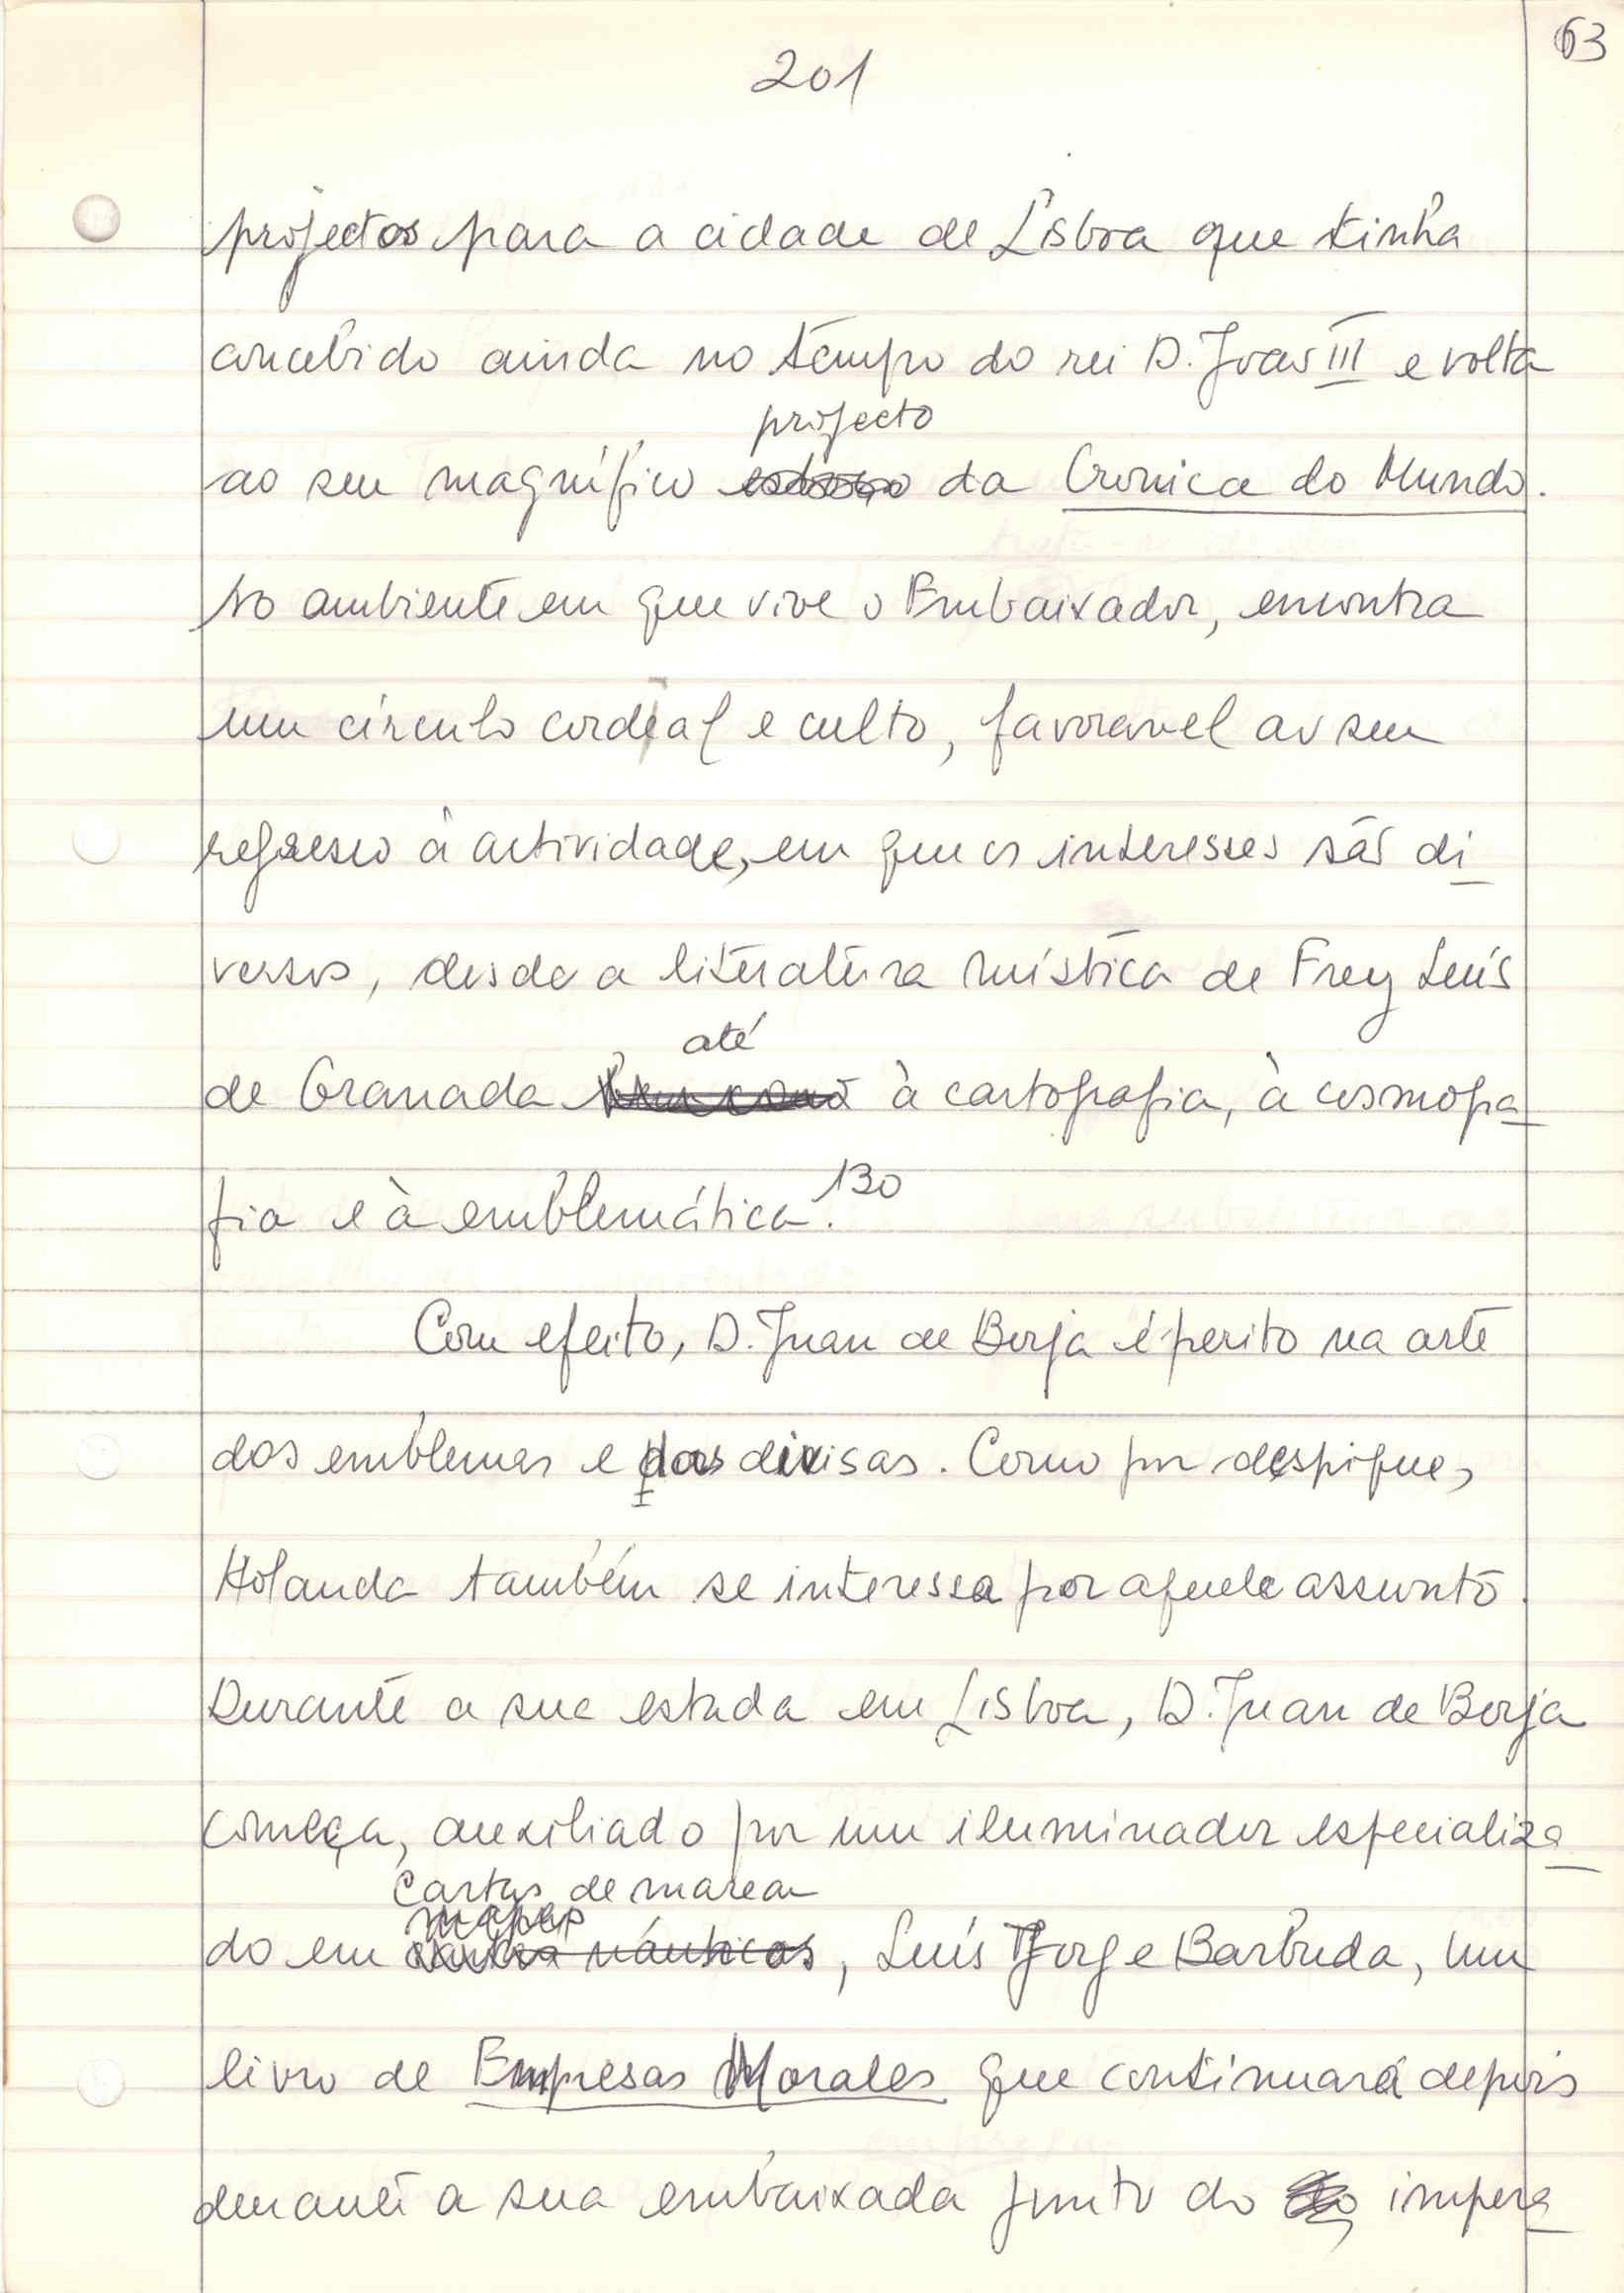 63
201
projectos para a cidade de Lisboa que tinha
concebido ainda no tempo do rei D. João III e volta
projecto
ao seu magnífico esboço da Cronica do Mundo.
No ambiente em que vive o Embaixador, encontra
um círculo cordial e culto, favoravel ao seu
regresso à actividade, em que os interesses são di
versos, desde a literatura mística de Frey Luís
até
de Granada bem como à cartografia, à cosmogra
fia e à emblemática.130
Com efeito, D. Juan de Borja é perito na arte
dos emblemas e das divisas. Como por despique,
Holanda também se interessa por aquele assunto.
Durante a sua estada em Lisboa, D. Juan de Borja
começa, auxiliado por um iluminador especializa
cartas de marear
mapas
do em náuticas, Luís Jorge Barbuda, um
livro de Empresas Morales que continuará depois
durante a sua embaixada junto do impera